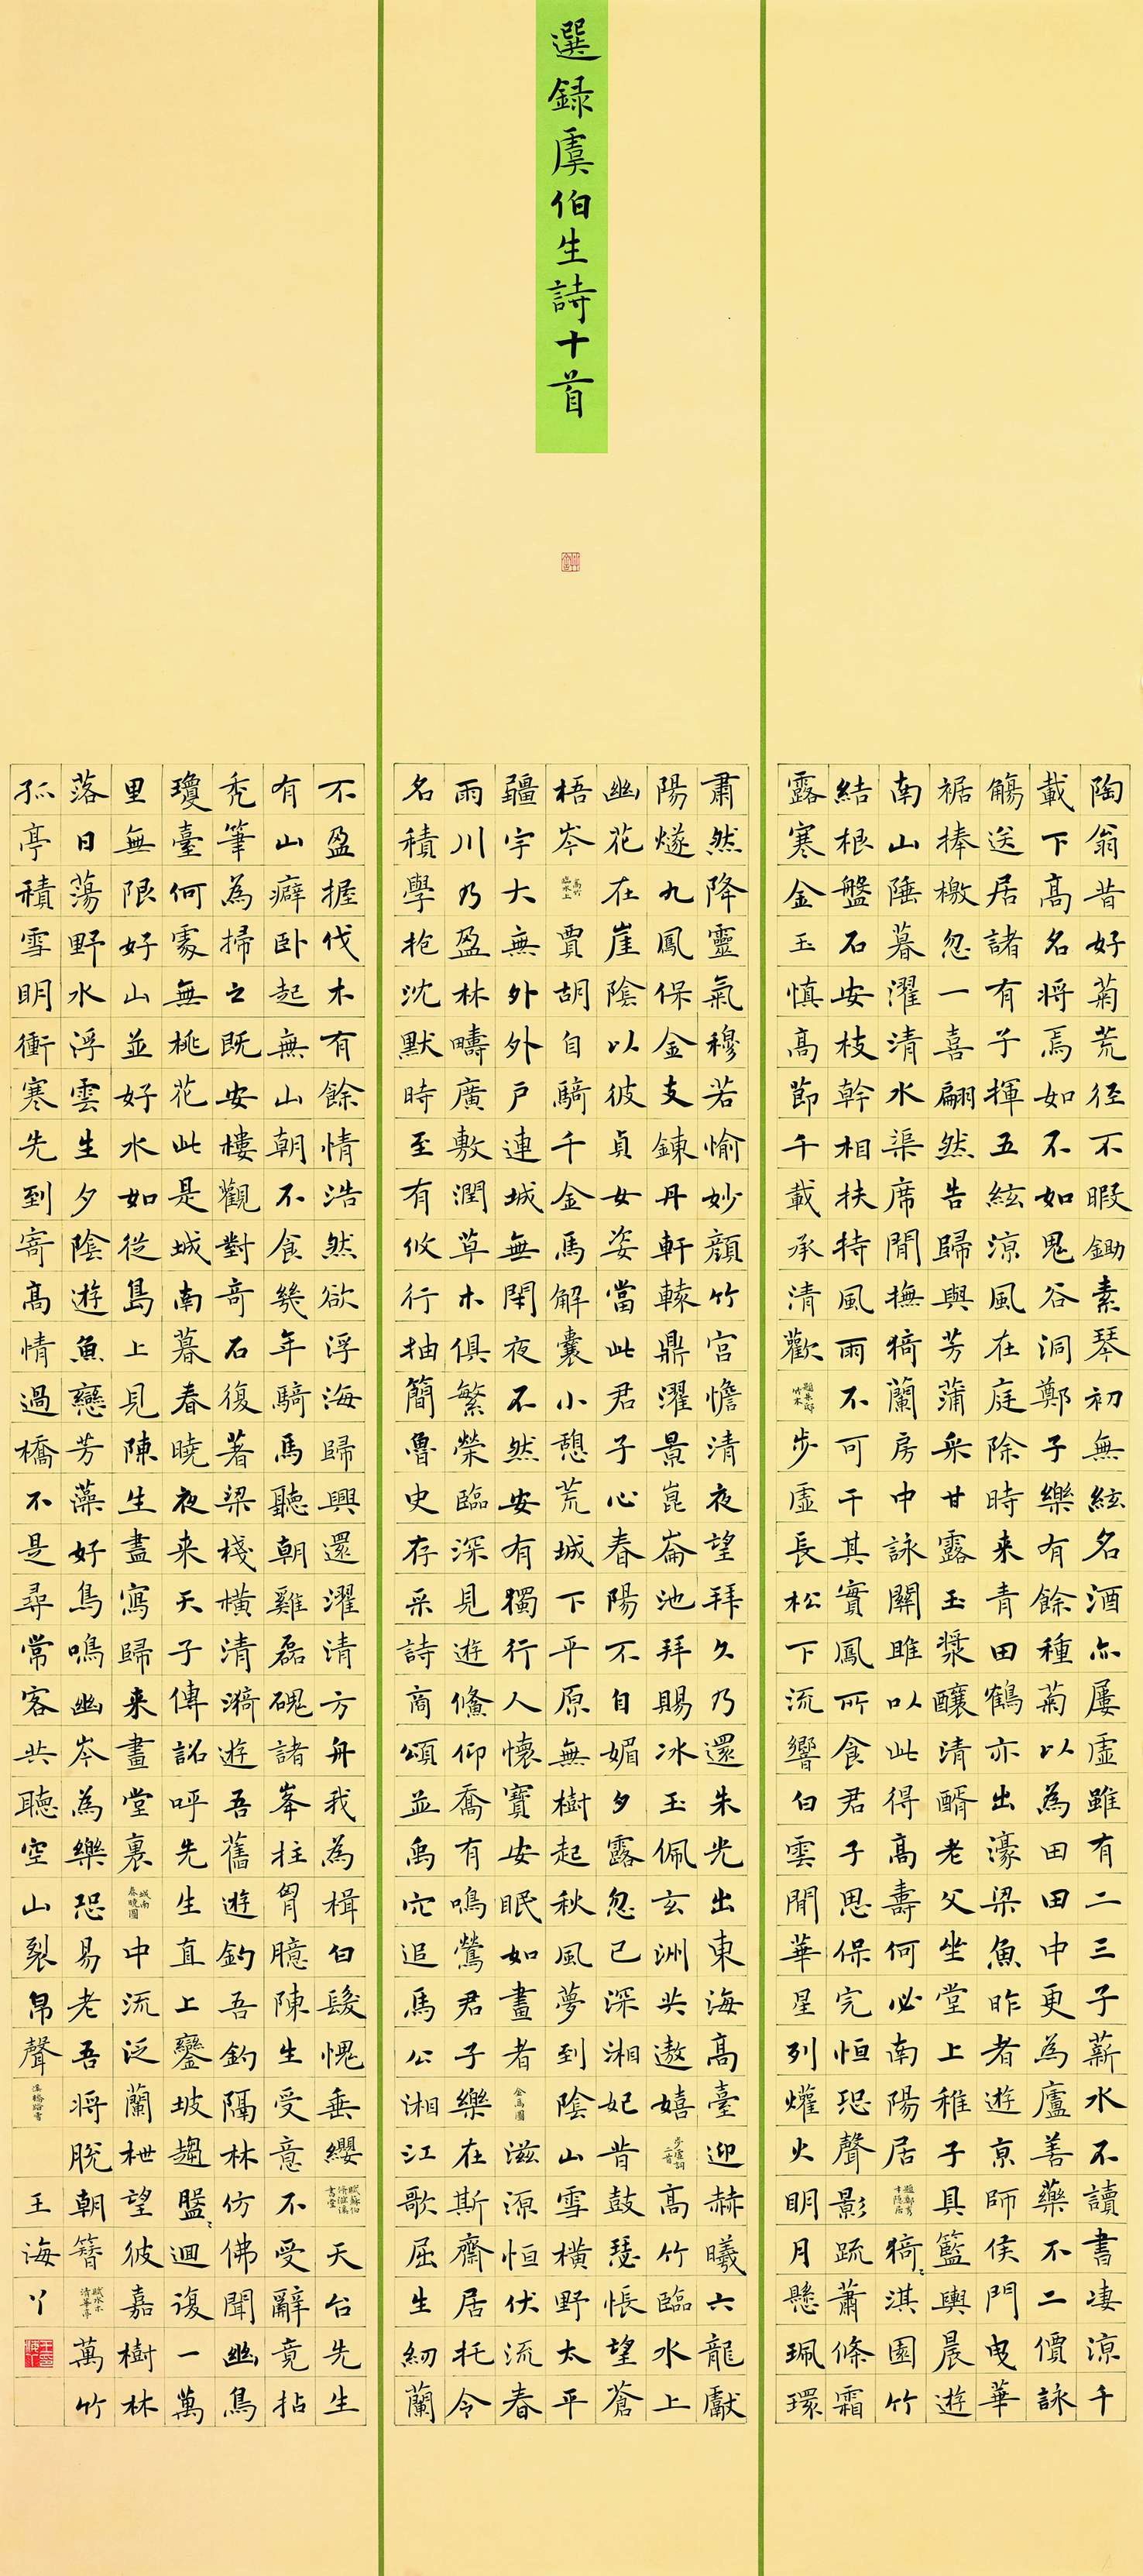 選録虞伯生詩十首
陶翁昔好菊荒徑不暇鋤素琴初無絃名酒亦屢虛雖有二三子薪水不讀書淒涼千
載下高名将焉如不如鬼谷洞鄭子樂有餘種菊以為田田中更為廬善藥不二價詠
觴送居諸有子揮五絃涼風在庭除時来青田鶴亦出濠梁魚昨者遊京師侯門曳華
裾捧檄忽一喜翩然告歸與芳蒲采甘露玉漿釀清醑老父坐堂上稚子具籃輿晨遊
南山陲暮濯清水渠席閒撫猗蘭房中詠關雎以此得高壽何必南陽居
猗猗淇園竹
結根盤石安枝幹相扶持風雨不可干其實鳳所食君子思保完恒恐聲影疏蕭條霜
露寒金玉慎高節千載承清歡
步虛長松下流響白雲間華星列爟火明月懸珮環
肅然降靈氣穆若愉妙顔竹宮憺清夜望拜久乃還朱光出東海高臺迎赫曦六龍獻
陽燧九鳳保金支鍊丹軒轅鼎濯景崑崙池拜賜冰玉佩玄洲共遨嬉
步虛詞二首
高竹臨水上
幽花在崖陰以彼貞女姿當此君子心春陽不自媚夕露忽已深湘妃昔鼓瑟悵望蒼
梧岑
高竹臨水上
賈胡自騎千金馬解囊小憩荒城下平原無樹起秋風夢到陰山雪橫野太平
疆宇大無外外戶連城無閑夜不然安有獨行人懷寶安眠如晝者
金馬圖
滋源恒伏流春
雨川乃盈林疇廣敷潤草木俱繁榮臨深見遊鯈仰喬有鳴鶯君子樂在斯齋居托令
名積學抱沈默時至有攸行抽簡魯史存采詩商頌並禹穴追馬公湘江歌屈生紉蘭
不盈握伐木有餘情浩然欲浮海歸興還濯清方舟我為楫白髮愧垂纓
天台先生
有山癖卧起無山朝不食幾年騎馬聽朝雞磊磈諸峯拄胷臆陳生受意不受辭竟拈
禿筆為掃之既安樓觀對奇石復著梁棧橫清漪遊吾舊遊釣吾釣隔林仿佛聞幽鳥
瓊臺何處無桃花此是城南暮春曉夜来天子傳詔呼先生直上鑾坡趨盤盤迴復一萬
里無限好山並好水如從島上見陳生盡寫歸来畫堂裏
城南春曉圖
中流泛蘭枻望彼嘉樹林
落日蕩野水浮雲生夕陰遊魚戀芳藻好鳥鳴幽岑為樂恐易老吾將脫朝簪
萬竹
孤亭積雪明衝寒先到寄高情過橋不是尋常客共聽空山裂帛聲
王海丫